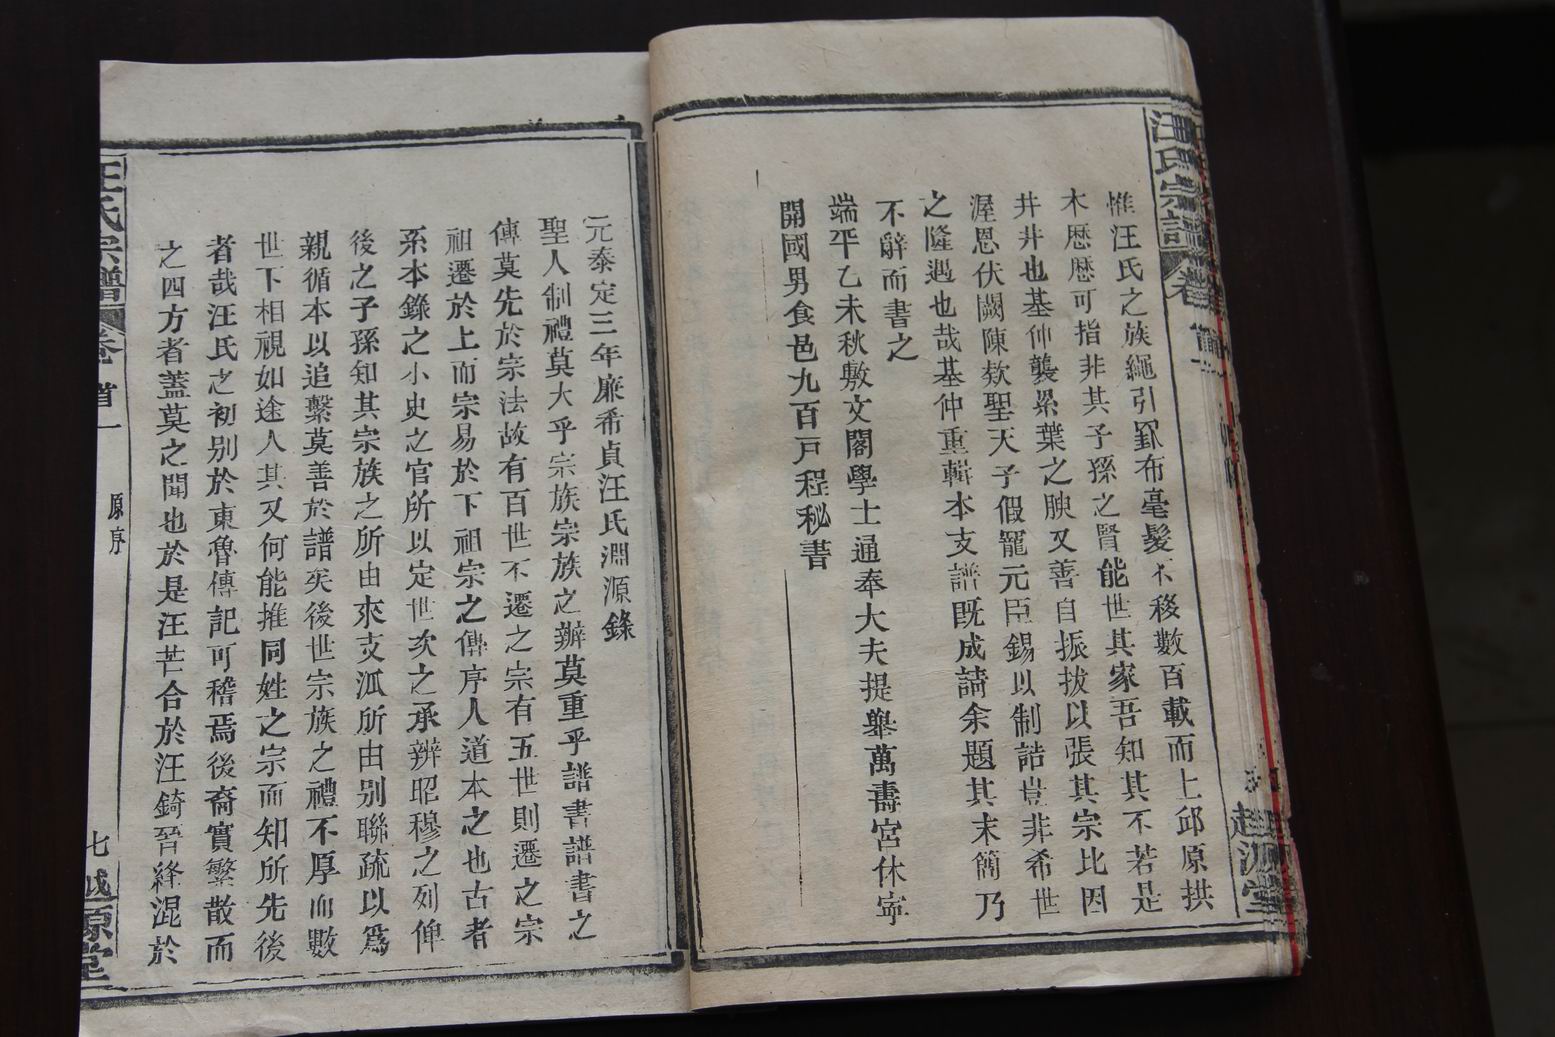 汪氏宗譜
卷
惟汪氏之族繩引釽布毫髮不移數百載而上邱原拱
木歷歷可指非其子孫之賢能世其家吾知其不若是
井井也基仲襲累葉之腴又善自振拔以張其宗比因
渥恩伏闕陳欸聖天子假寵元臣錫以制誥豈非希世
之隆遇也哉基仲重輯本支譜既成請余題其末簡乃
不辭而書之
端平乙未秋敷文閣學士通奉大夫提舉萬壽宮休寧
開國男食邑九百戸程秘書
元泰定三年廉希貞汪氏淵源錄
聖人制禮莫大乎宗族宗族之辦莫重乎譜書譜書之
傳莫先於宗法故有百世不遷之宗有五世則遷之宗
祖遷於上而宗易於下祖宗之傳序人道本之也古者
系本錄之小史之官所以定世次之承辨昭穆之列俾
後之子孫知其宗族之所由來支派所由别聯疏以爲
親循本以追繫莫善於譜矣後世宗族之禮不厚而數
世下相視如途人其又何能推同姓之宗而知所先後
者哉汪氏之初别於東魯傳記可稽焉後裔實繁散而
之四方者蓋莫之聞也於是汪芒合於汪錡晉絳混於
汪氏宗譜
卷首一
原序
七
越源堂